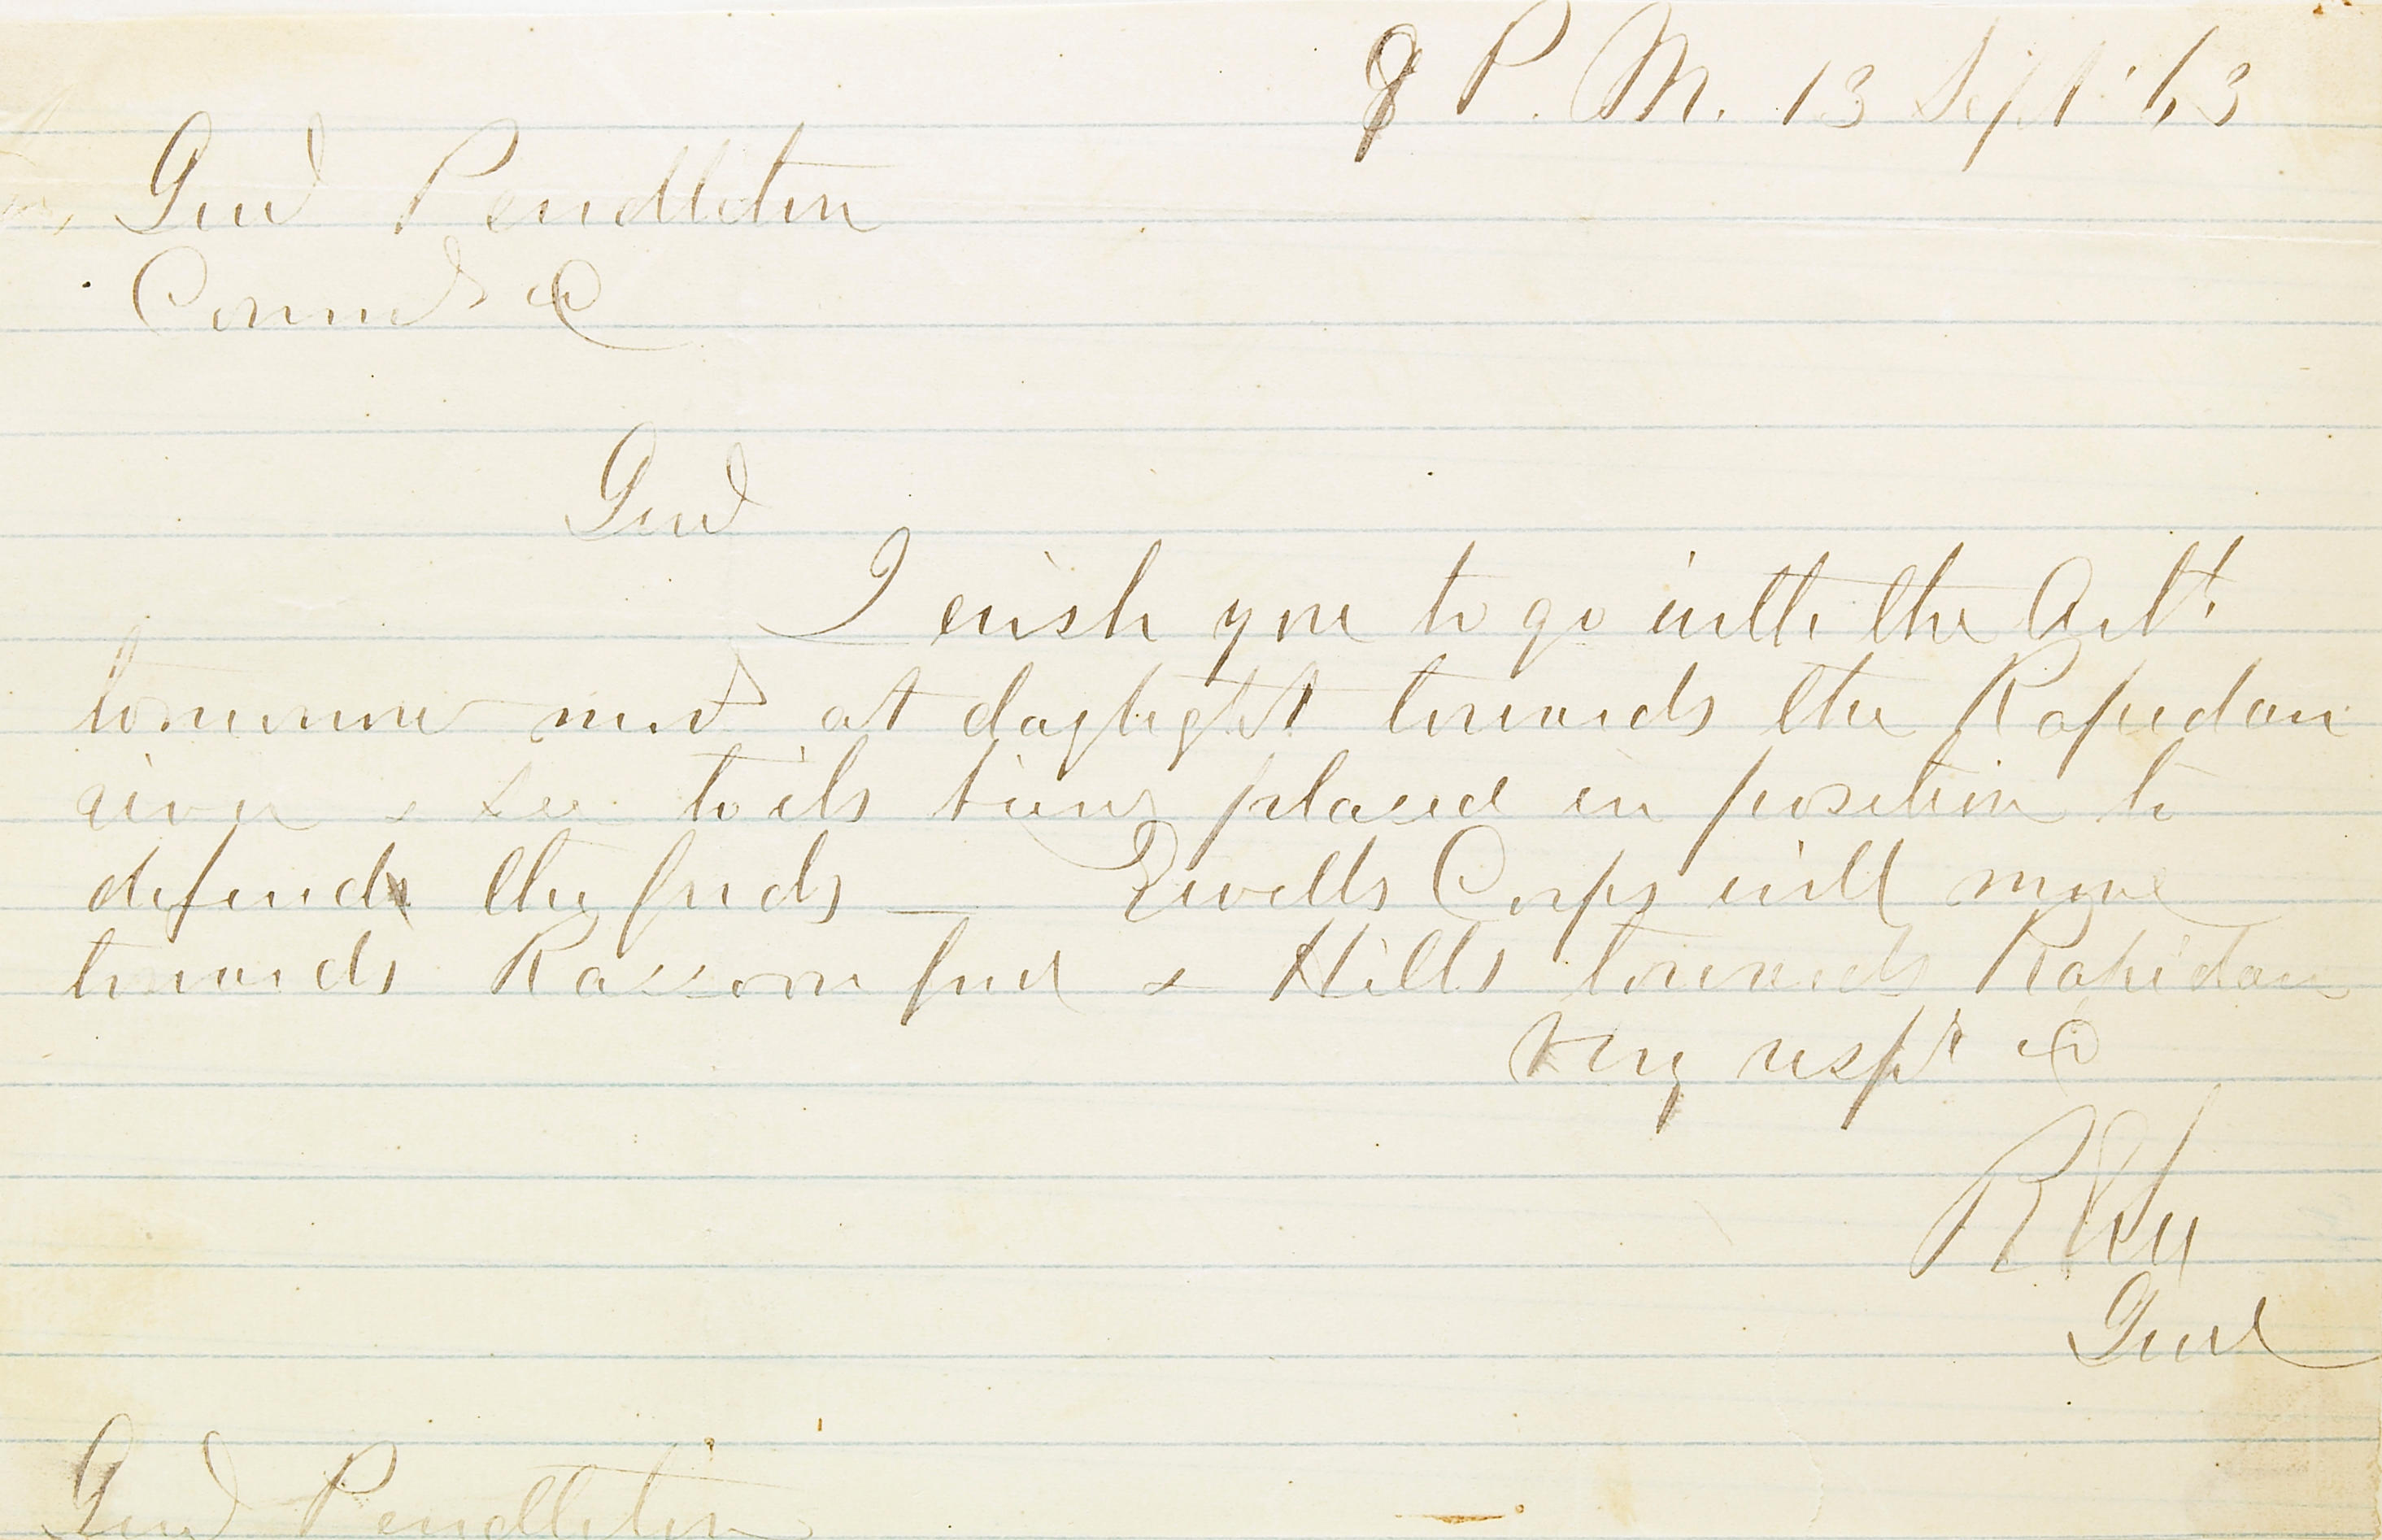 8 P. M. 13 Sept '63
Genl Pendleton
Commdg &c
Genl
I wish you to go with the Arty.
tomorrow morng at daylight towards the Rapidan
river & see to its being placed in position to
defend the fords — Ewells Corps will move
towards Raccoon ford & Hills towards Rapidan
Very respy &c
R E Lee
Genl
Genl Pendleton